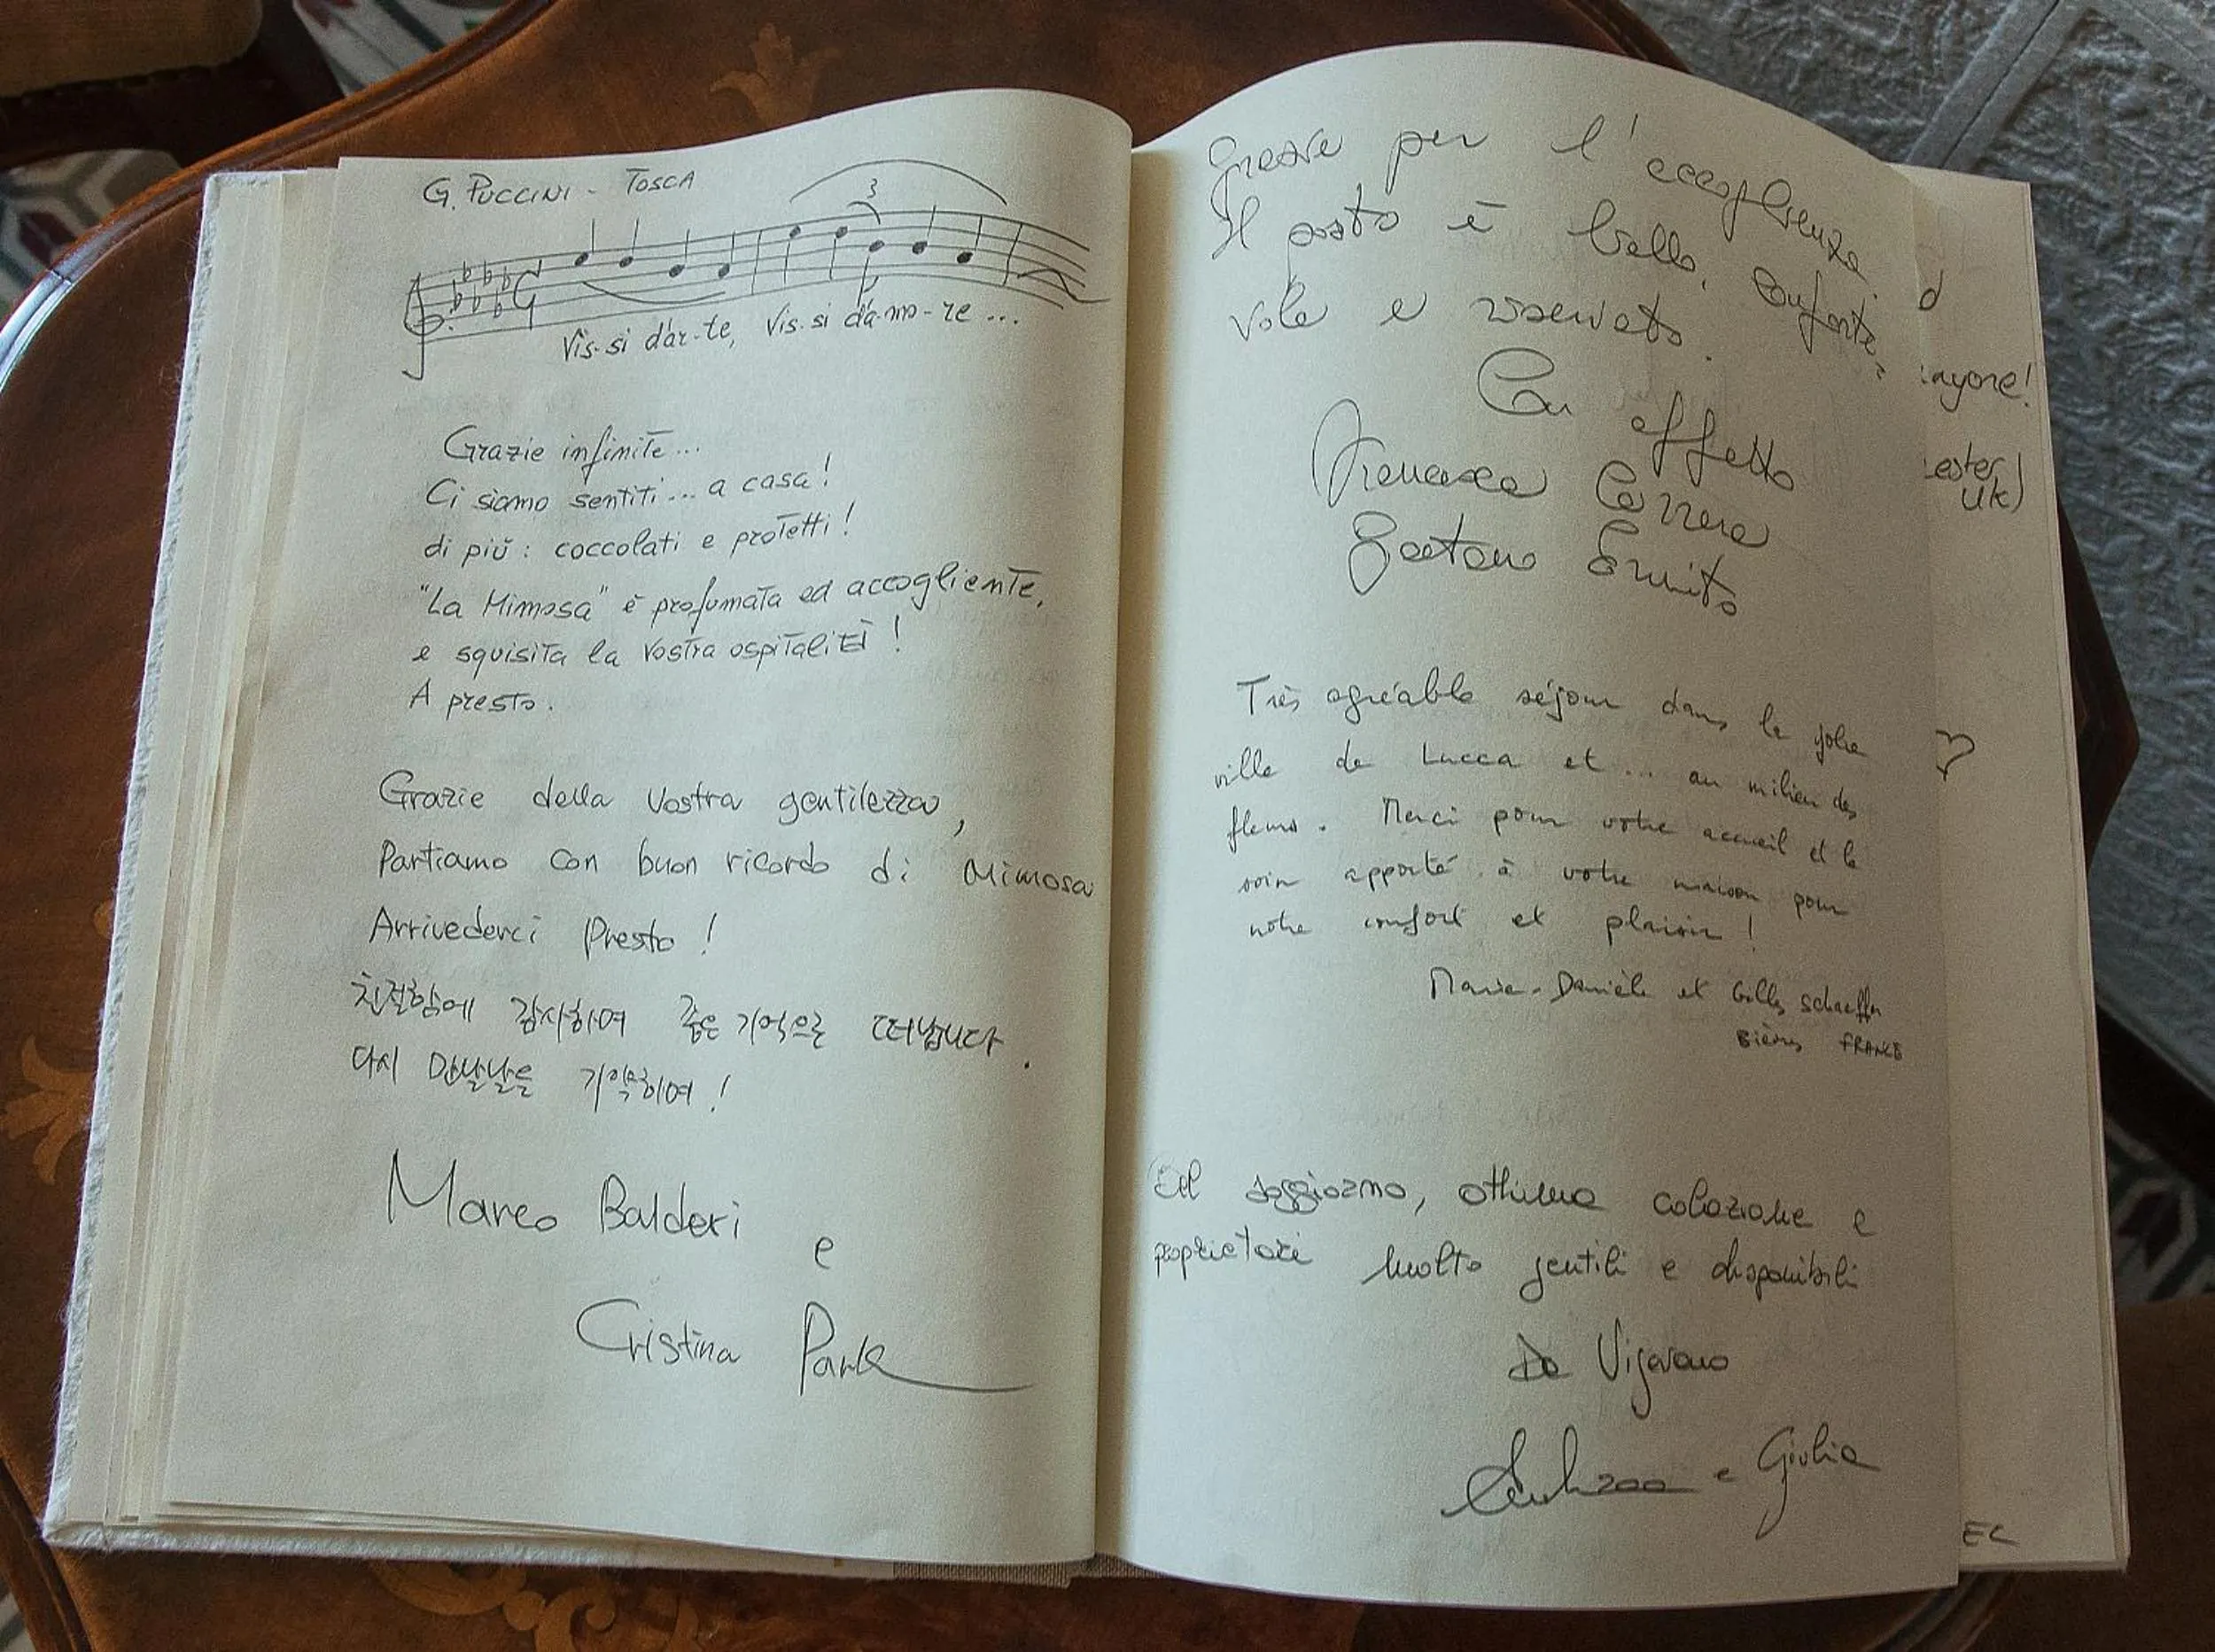 G. PUCCINI - TOSCA
3
Vis-si d'ar-te, Vis-si d'a-mo-re ...
Grazie infinite...
Ci siamo sentiti... a casa!
di più: coccolati e protetti!
"La Mimosa" è profumata ed accogliente,
e squisita la vostra ospitalità!
A presto.
Grazie della vostra gentilezza,
Partiamo con buon ricordo di Mimosa
Arrivederci Presto!
친절함에 감사하며 좋은 기억으로 떠납니다.
다시 만날날을 기약하며!
Marco Balderi
e
Cristina Park
Grazie per l'accoglienza.
Il posto è bello, conforte-
vole e riservato.
Con affetto
Francesca Carrera
Gaetano
Très agréable séjour dans la jolie
ville de Lucca et... au milieu des
fleurs. Merci pour votre accueil et le
soin apporté à votre maison pour
notre confort et plaisir!
Marie-Danièle et Gilles Schaeffer
Bièvres FRANCE
soggiorno, ottima colazione e
proprietari molto gentili e disponibili
Da Vigevano
e Giulia
d
ayone!
ester
UK)
EC